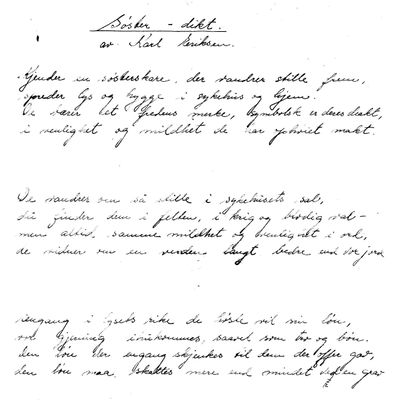 Søster - dikt.
av Karl Eriksen.
Kjender en søsterskare, der vandrer stille frem,
spreder lys og hygge i sykehus og hjem.
De bærer et fredens merke, symbolsk er deres drakt,
i venlighet og mildhet de har ophøiet makt.
De vandrer om så stille i sykehusets sal,
du finder dem i felten, i krig og blodig val -
men altid samme mildhet og venlighet i ord,
de vidner om en verden langt bedre end vor jord
engang i lysets rike de høste vil sin løn,
vor gjerning ihukommes, saavel som tro og bøn.
den løn der engang skjænkes til dem der offer gav,
den løn maa skattes mere end mindet en grav